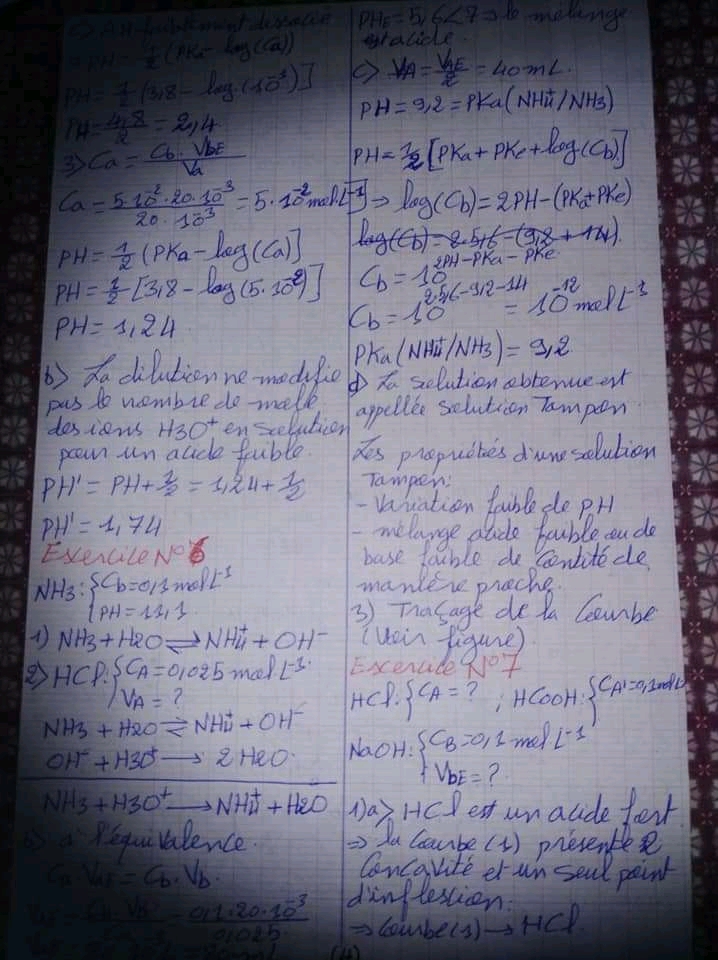 c) AH faiblement dissocié
PH = 1/2 (PKa - log(Ca))
PH = 1/2 (3,8 - log(10⁻³)]
PH = 4,8/2 = 2,4
3> Ca = Cb · VbE / Va
Ca = 5·10⁻² · 20·10⁻³ / 20·10⁻³ = 5·10⁻² mol.L⁻¹
PH = 1/2 (PKa - log(Ca)]
PH = 1/2 [3,8 - log(5·10⁻²)]
PH = 1,24
b> La dilution ne modifie
pas le nombre de mole
des ions H3O⁺ en solution
pour un acide faible.
PH' = PH + 1/2 = 1,24 + 1/2
PH' = 1,74
Exercice N°6
NH3: { Cb = 0,1 mol L⁻¹
PH = 11,1
1) NH3 + H2O ⇌ NH4⁺ + OH⁻
2> HCl: { CA = 0,025 mol L⁻¹.
VA = ?
NH3 + H2O ⇌ NH4⁺ + OH⁻
OH⁻ + H3O⁺ → 2H2O
NH3 + H3O⁺ → NH4⁺ + H2O
b) à l'équivalence.
Ca VaE = Cb · Vb
VaE = Cb · Vb / Ca = 0,1·20·10⁻³ / 0,025
PHE = 5,6 < 7 ⇒ le mélange
est acide.
c> VA = VAE/2 = 40 mL.
PH = 9,2 = PKa (NH4⁺/NH3)
PH = 1/2 [PKa + PKe + log(Cb)]
⇒ log(Cb) = 2PH - (PKa + PKe)
log(Cb) = 2.5,6 - (9,2 + 14).
Cb = 10^2PH-PKa-PKe
Cb = 10^2.5,6-9,2-14 = 10⁻¹² mol L⁻¹
PKa (NH4⁺/NH3) = 9,2
d> La solution obtenue est
appellée solution Tampon.
Les propriétés d'une solution
Tampon:
- Variation faible de PH
- mélange acide faible ou de
base faible de contité de
manière proche.
3) Traçage de la Courbe
(Voir figure).
Exercice N°7
HCl: { CA = ? ; HCOOH: { CA' = 0,1 mol L
NaOH: { CB = 0,1 mol L⁻¹
VbE = ?
1) a> HCl est un acide fort
⇒ la Courbe (1) présente 2
Concavité et un seul point
d'inflexion.
⇒ Courbe (1) → HCl.
(4)